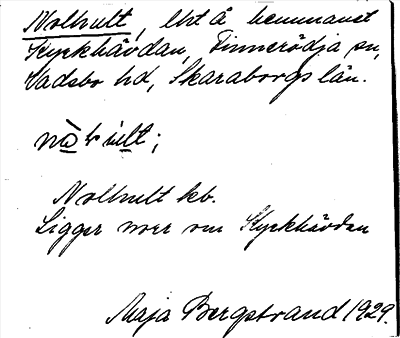 Nolhult, lht å hemmanet
Kyrkhävdan, Finnerödja sn,
Vadsbo hd, Skaraborgs län.
Nolhult kb.
Ligger norr om Kyrkhävdan
Maja Bergstrand 1929.